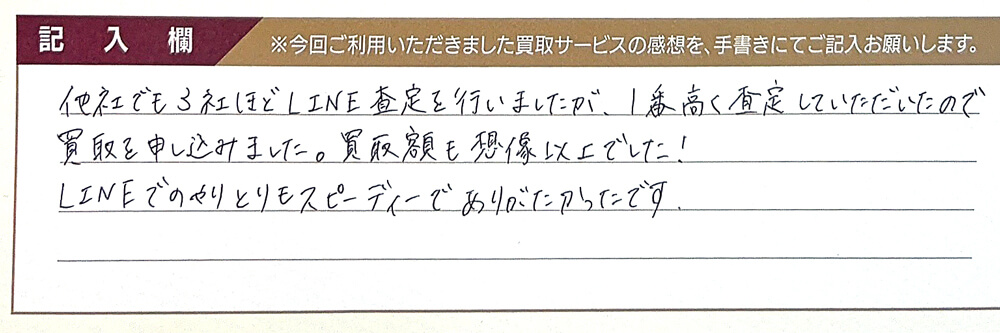 記入欄
※今回ご利用いただきました買取サービスの感想を、手書きにてご記入お願いします。
他社でも3社ほどLINE査定を行いましたが、1番高く査定していただいたので
買取を申し込みました。買取額も想像以上でした!
LINEでのやりとりもスピーディーでありがたかったです.